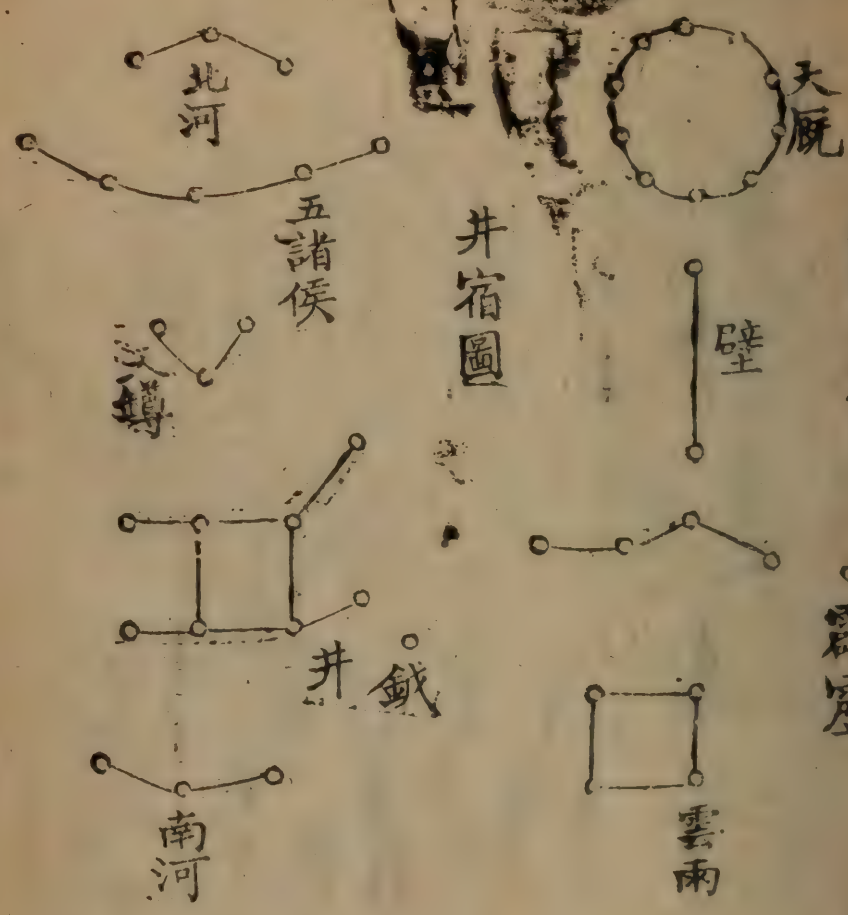 天廐
壁
雲雨
井宿圖
北河
五諸侯
鐏
井
鉞
南河